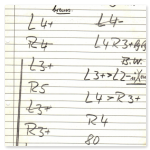 L4+
R4
L3+
R5
L3+
R3+
L4-
L4 R3+
B.W.
L3+>L2-
L4>R3+
R4
80